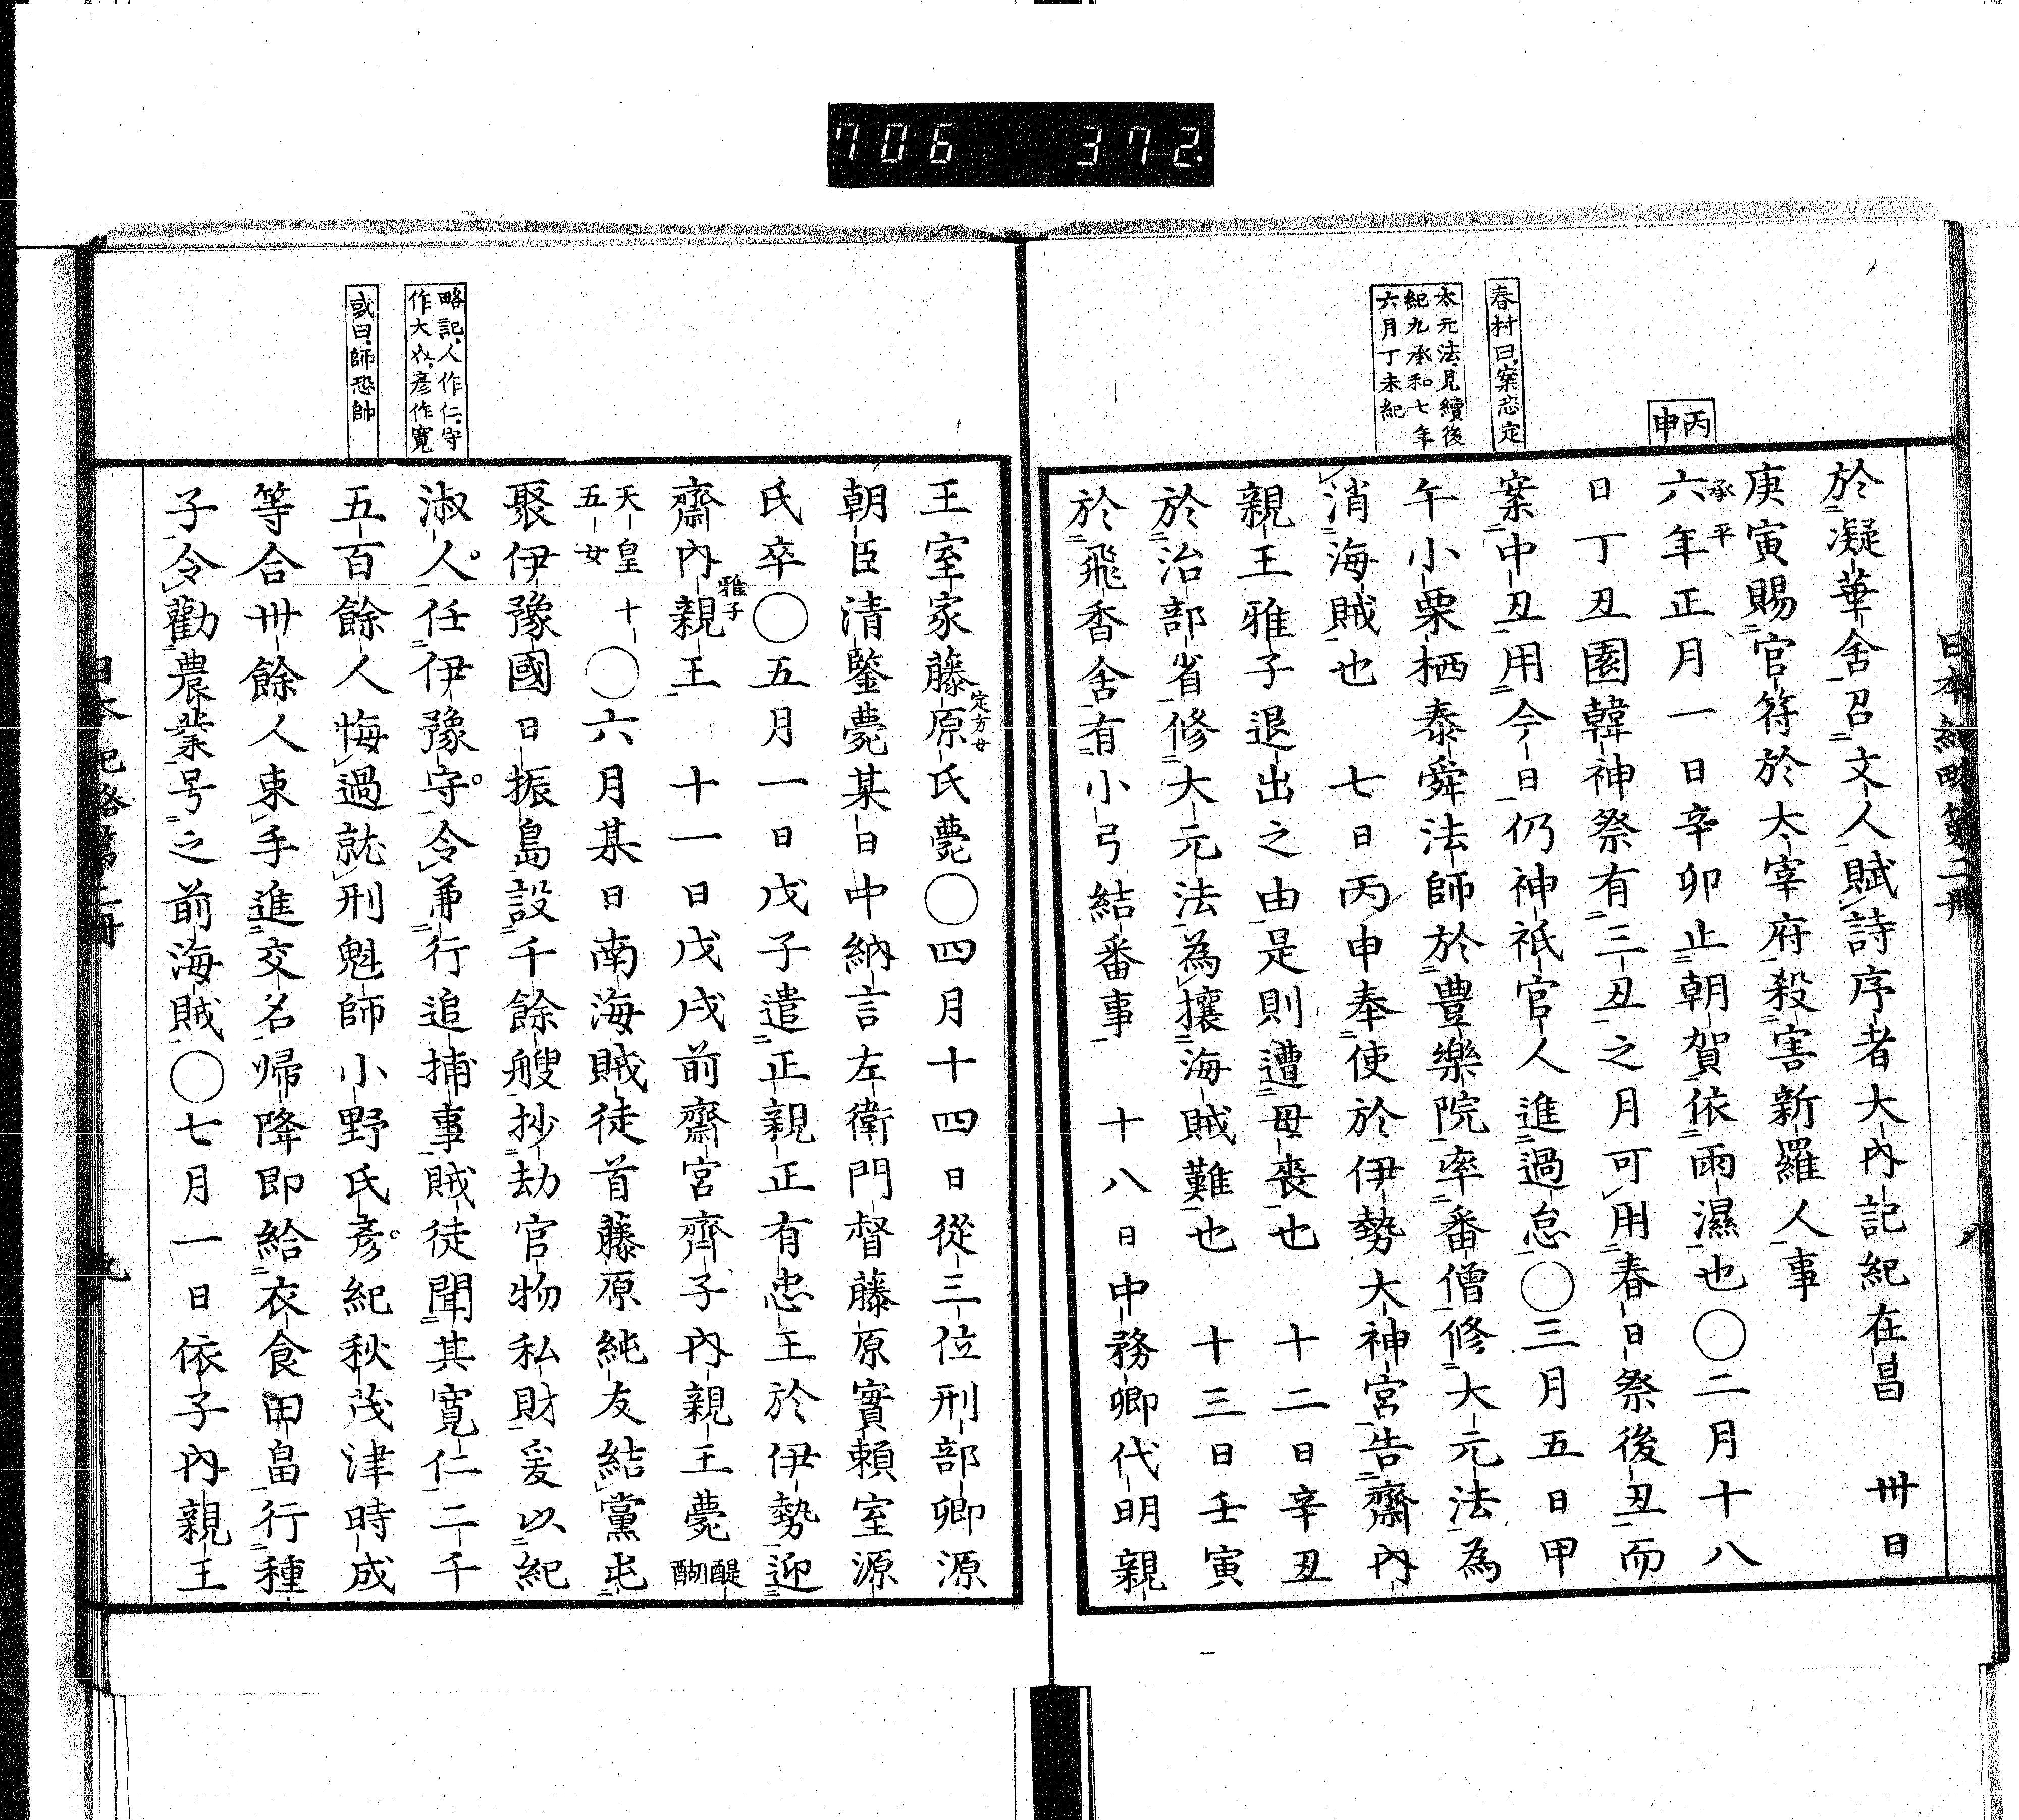 706 372.
日本紀略第二冊
八
丙申
春村曰案恐定
太元法見續後
紀九承和七年
六月丁未紀
於凝華舎召文人賦詩序者大內記紀在昌 卅日
庚寅賜官符於大宰府殺害新羅人事
承平
六年正月一日辛卯止朝賀依雨濕也〇二月十八
日丁丑園韓神祭有三丑之月可用春日祭後丑而
案中丑用今日仍神祇官人進過怠〇三月五日甲
午小栗栖泰舜法師於豊樂院率番僧修大元法為
消海賊也 七日丙申奉使於伊勢大神宮告齋內
親王雅子退出之由是則遭母喪也 十二日辛丑
於治部省修大元法為攘海賊難也 十三日壬寅
於飛香舎有小弓結番事 十八日中務卿代明親
略記人作仁守
作大夫彦作寛
或曰師恐帥
王室家藤原氏薨〇四月十四日從三位刑部卿源
定方女
朝臣清鑒薨某日中納言左衛門督藤原實頼室源
氏卒〇五月一日戊子遣正親正有忠王於伊勢迎
齋內親王 十一日戊戌前齋宮齊子內親王薨醍醐
雅子
天皇十
五女
〇六月某日南海賊徒首藤原純友結黨屯
聚伊豫國日振島設千餘艘抄劫官物私財爰以紀
淑人任伊豫守令兼行追捕事賊徒聞其寛仁二千
五百餘人悔過就刑魁師小野氏彦紀秋茂津時成
等合卅餘人束手進交名帰降即給衣食田畠行種
子令勸農業号之前海賊〇七月一日依子內親王
日本紀略第二冊
九